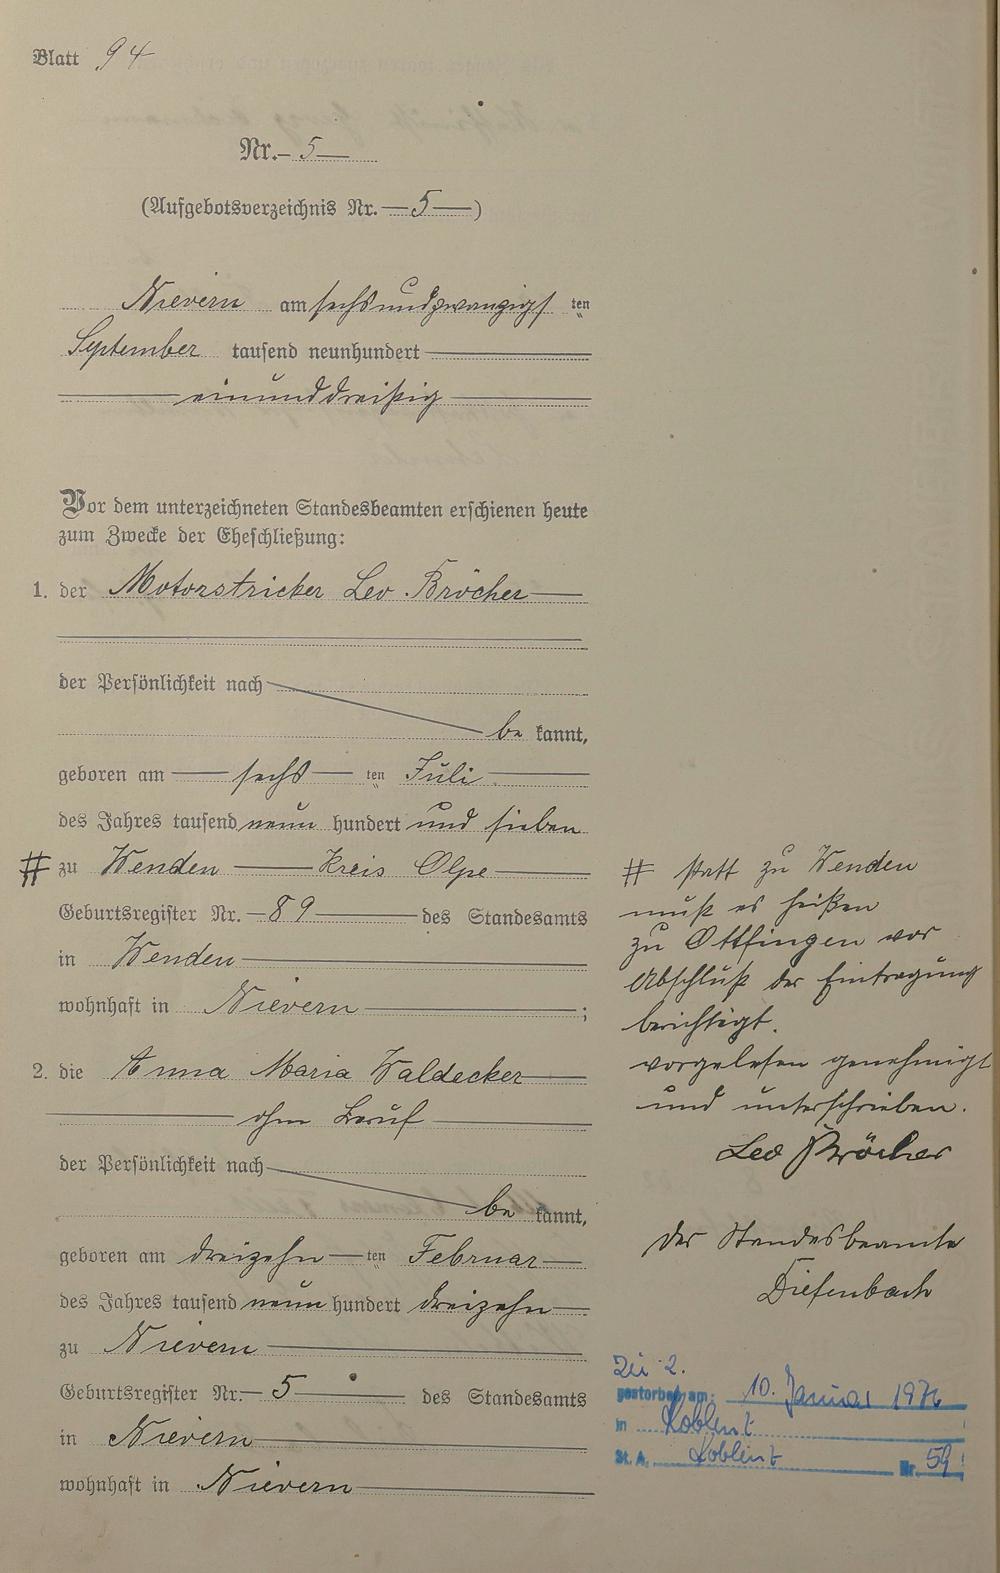 Blatt 94
Nr. 5
(Aufgebotsverzeichnis Nr. 5 )
Nievern am sechsundzwanzigs ten
September tausend neunhundert
einunddreißig
Vor dem unterzeichneten Standesbeamten erschienen heute
zum Zwecke der Eheschließung:
1. der Motorstricker Leo Bröcher
der Persönlichkeit nach
be kannt,
geboren am sechs ten Juli
des Jahres tausend neun hundert und sieben
# zu Wenden Kreis Olpe
Geburtsregister Nr. 89 des Standesamts
in Wenden
wohnhaft in Nievern ;
2. die Anna Maria Waldecker
ohne Beruf
der Persönlichkeit nach
be kannt,
geboren am dreizehn ten Februar
des Jahres tausend neun hundert dreizehn
zu Nievern
Geburtsregister Nr. 5 des Standesamts
in Nievern
wohnhaft in Nievern
# statt zu Wenden
muß es heißen
zu Ottfingen vor
Abschluß der Eintragung
berichtigt.
vorgelesen genehmigt
und unterschrieben.
Leo Bröcher
Der Standesbeamte
Diefenbach
Zu 2.
gestorben am: 10. Januar 1976
in Koblenz
St. A. Koblenz Nr. 59